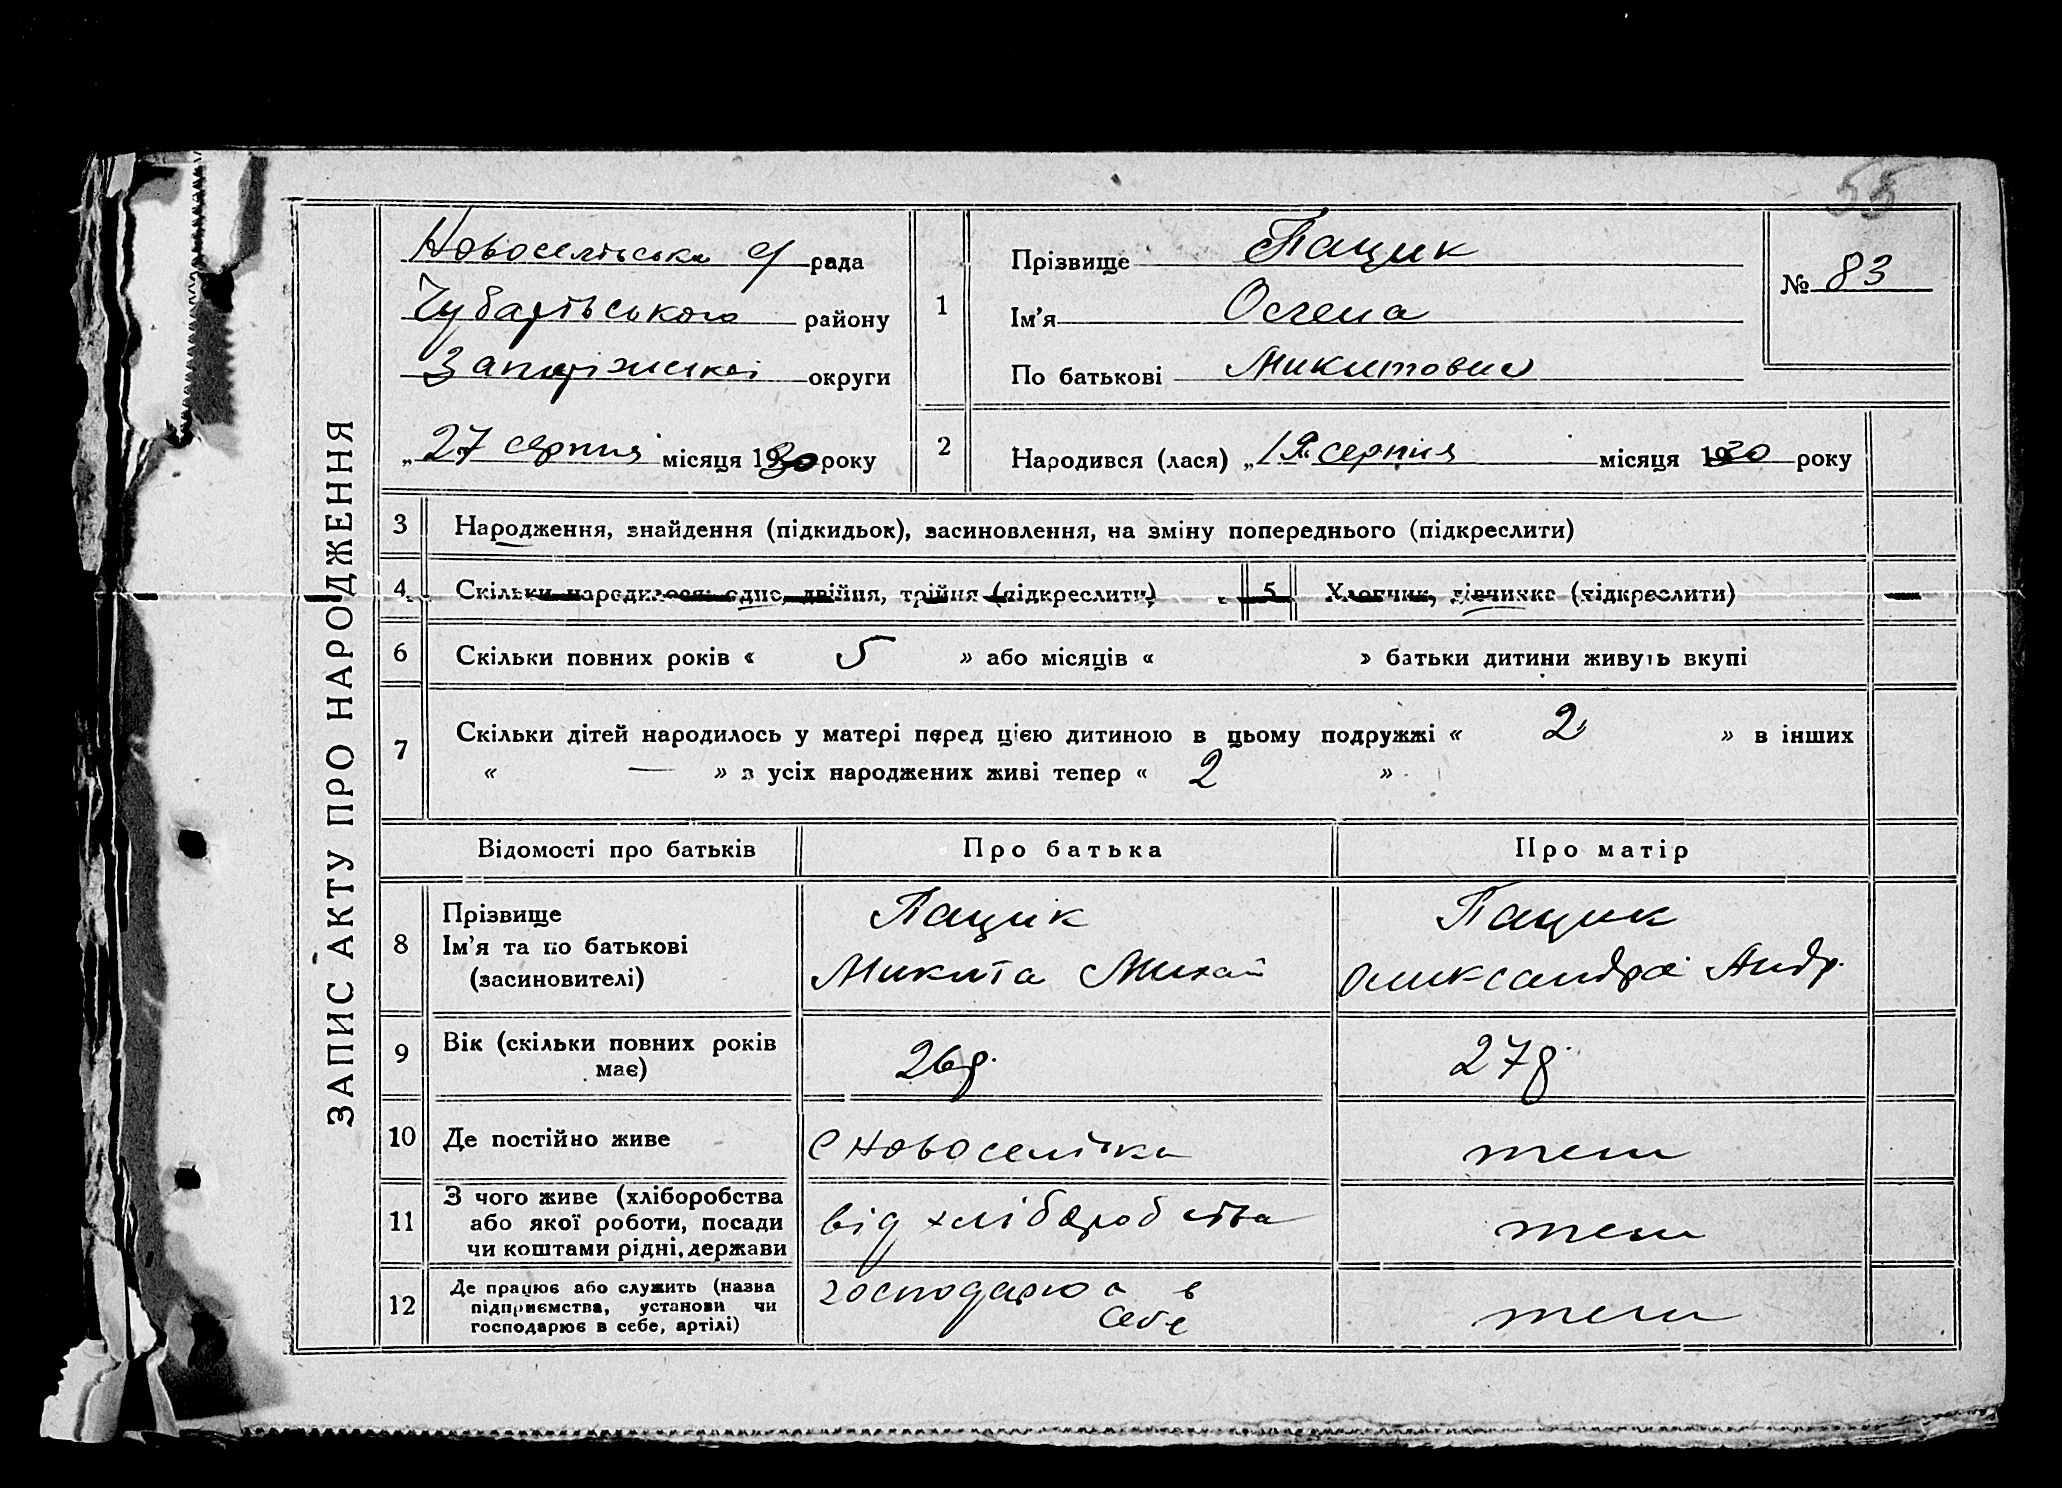 55
ЗАПИС АКТУ ПРО НАРОДЖЕННЯ
Новоселівська с/рада
Чубарівського району
Запоріжської округи
„27 серпня місяця 1930 року
1
Прізвище Пащик
Ім'я
По батькові Микитовна
№ 83
2
Народився (лася) „ серпня місяця 1930 року
3 Народження, знайдення (підкидьок), засиновлення, на зміну попереднього (підкреслити)
4 Скільки народилося: одно, двійня, трійня (підкреслити) 5 Хлопчик, дівчинка (підкреслити)
6 Скільки повних років « 5 » або місяців « » батьки дитини живуть вкупі
7 Скільки дітей народилось у матері перед цією дитиною в цьому подружжі « 2 » в інших
« — » з усіх народжених живі тепер « 2 »
Відомості про батьків Про батька Про матір
8 Прізвище
Ім'я та по батькові
(засиновителі)
Пащик
Микита Михай
Пащик
Олександра Андр.
9 Вік (скільки повних років
має)
26р. 27р.
10 Де постійно живе с Новоселівка теж
11 З чого живе (хліборобства
або якої роботи, посади
чи коштами рідні, держави
від хліборобства теж
12 Де працює або служить (назва
підприємства, установи чи
господарює в себе, артілі)
господарює в
себе
теж